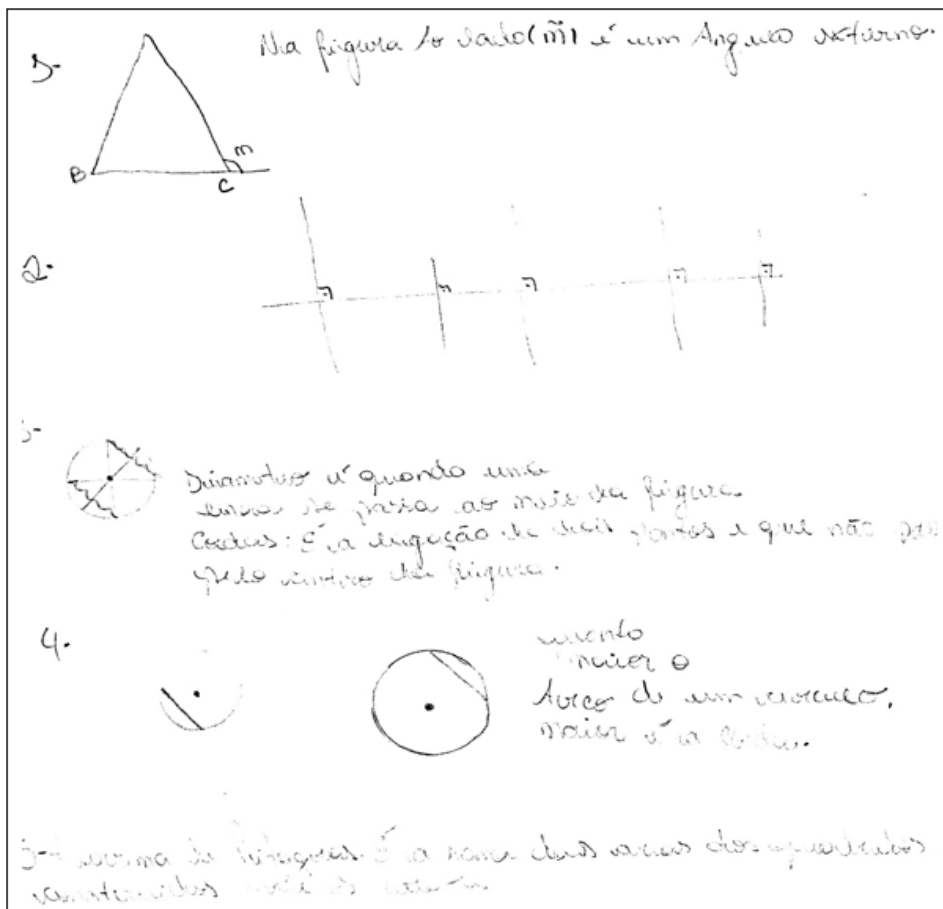 Na figura ao lado (m̂) é um Angulo externo.
m
B
C
2-
Diâmetro é quando uma
se passa ao meio da figura
Cordas: É a ligação de dois pontos e que não
pelo centro da figura.
4.
quanto
maior o
Arco de um círculo,
maior é a corda.
Teorema de Pitágoras. É a soma das áreas dos quadrados